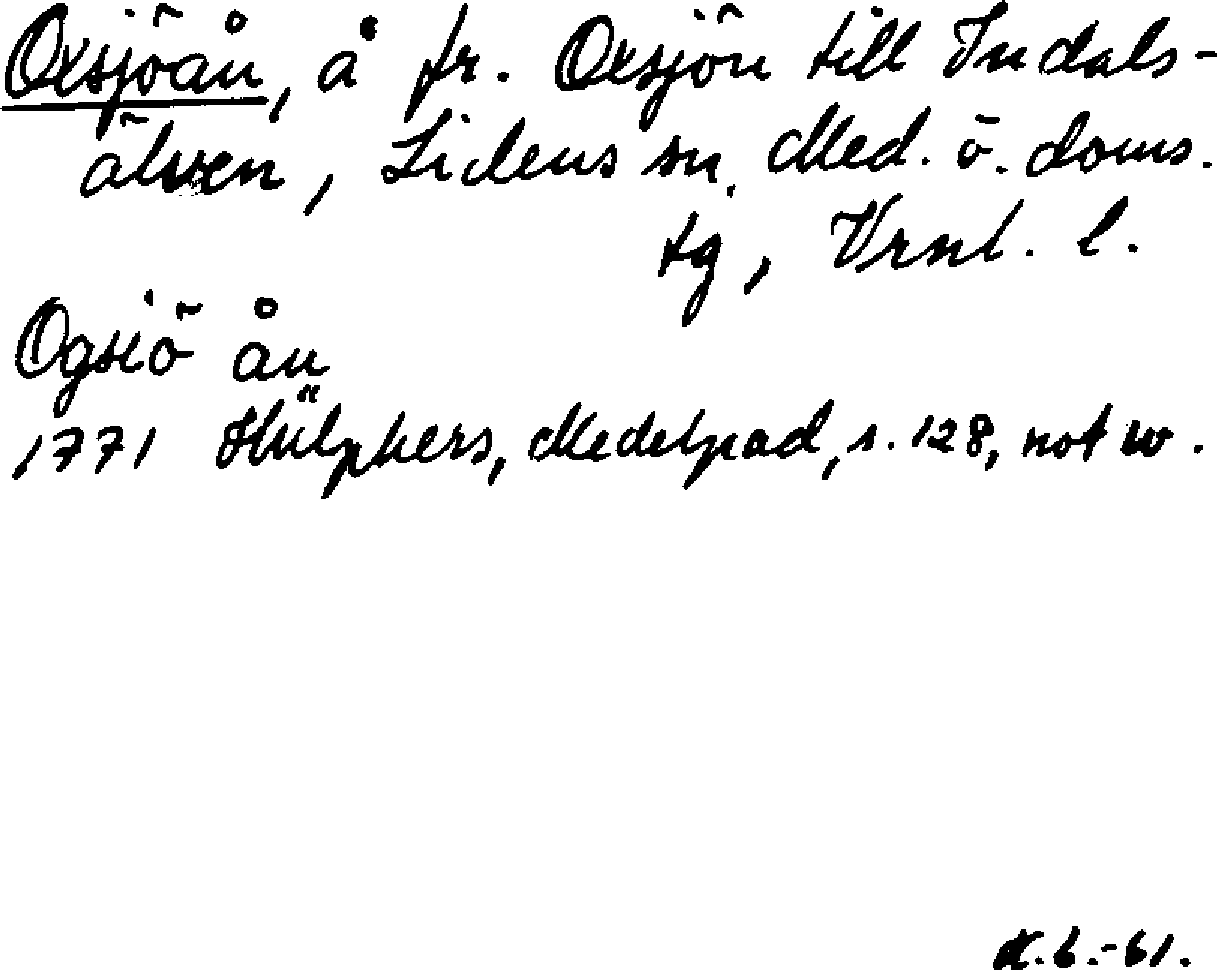 Oxsjöån, å fr. Oxsjön till Indals-
älven, Lidens sn, Med. ö. doms.
tg, Vrnl. l.
Ogsiö ån
1771 Hülphers, Medelpad, s. 128, not w.